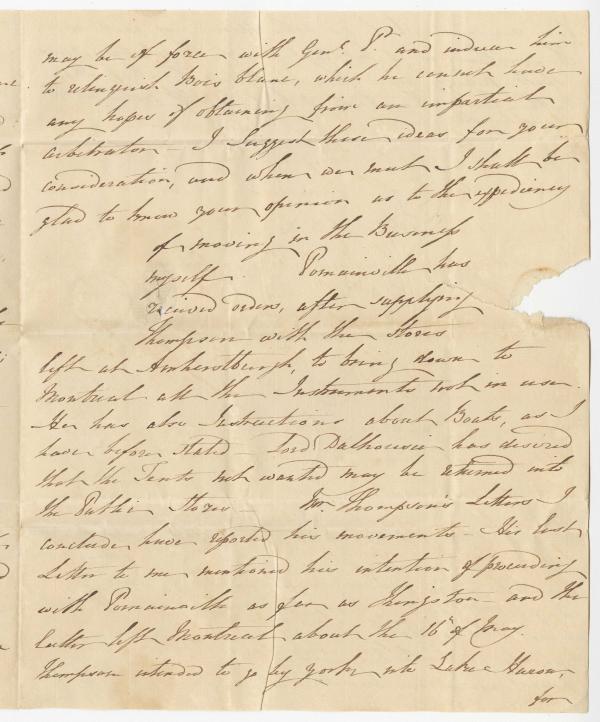 may be of force with Genl. P. and induce him
to relinquish Bois blanc, which he cannot have
any hopes of obtaining from an impartial
arbitrator – I suggest these ideas for your
consideration, and when we meet I shall be
glad to know your opinion as to the expediency
of moving in the Business
myself. Pomainville has
received orders, after supplying
Thompson with the Stores
left at Amherstburgh, to bring down to
Montreal all the Instruments not in use.
He has also Instructions about Boats, as I
have before stated – Lord Dalhousie has desired
that the Tents not wanted may be returned into
the Public Stores – Mr Thompson's Letters I
conclude have reported his movements – His last
Letter to me mentioned his intention of proceeding
with Pomainville as far as Kingston and the
latter left Montreal about the 16th of May.
Thompson intended to go by York into Lake Huron,
for